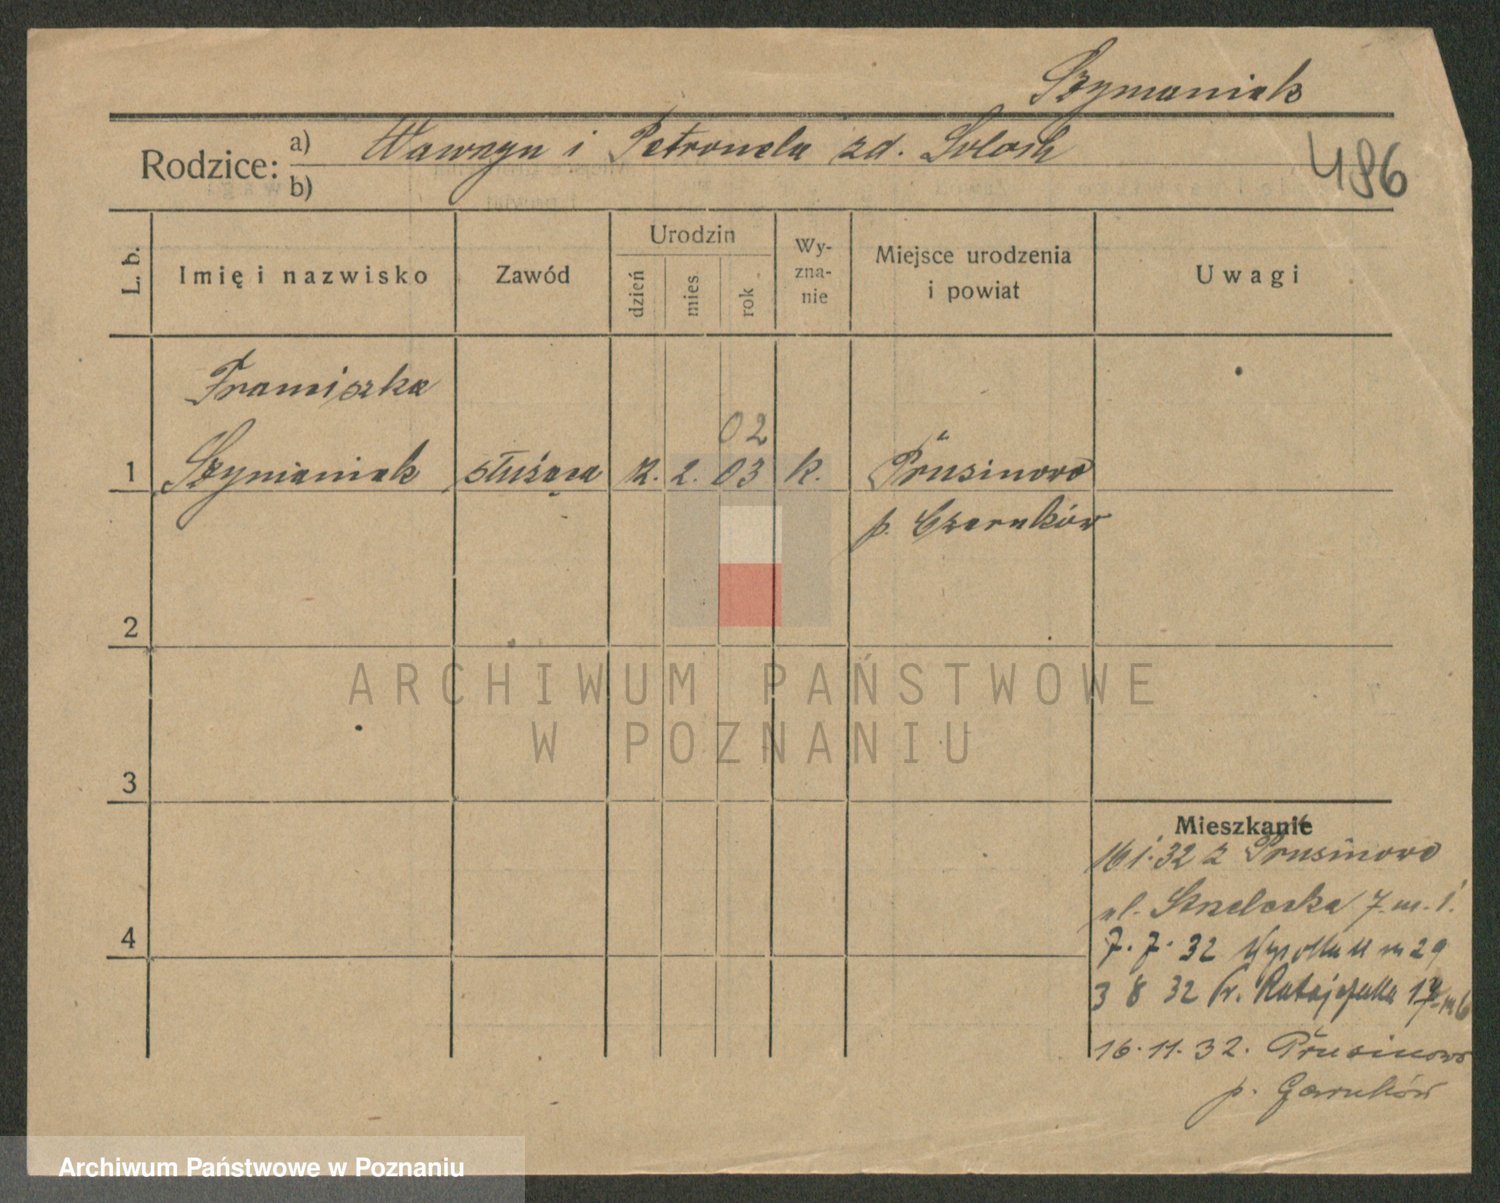 Szymaniak
Rodzice: a) Wawrzyn i Petronela zd.
b)
486
L. b.
Imię i nazwisko
Zawód
Urodzin
dzień
mies.
rok
Wy-
zna-
nie
Miejsce urodzenia
i powiat
Uwagi
Franciszka
02
1 Szymaniak służąca 2. 03 k. Prusinowo
p. Czarnków
2
3
4
Mieszkanie
16 1. 32 z Prusinowo
ul. Strzelecka 7. m. 1.
7. 7. 32 m 29
3 8 32 Fr. Ratajczaka 17 m 6
16. 11. 32. Prusinowo
p. Czarnków
ARCHIWUM PAŃSTWOWE
W POZNANIU
Archiwum Państwowe w Poznaniu